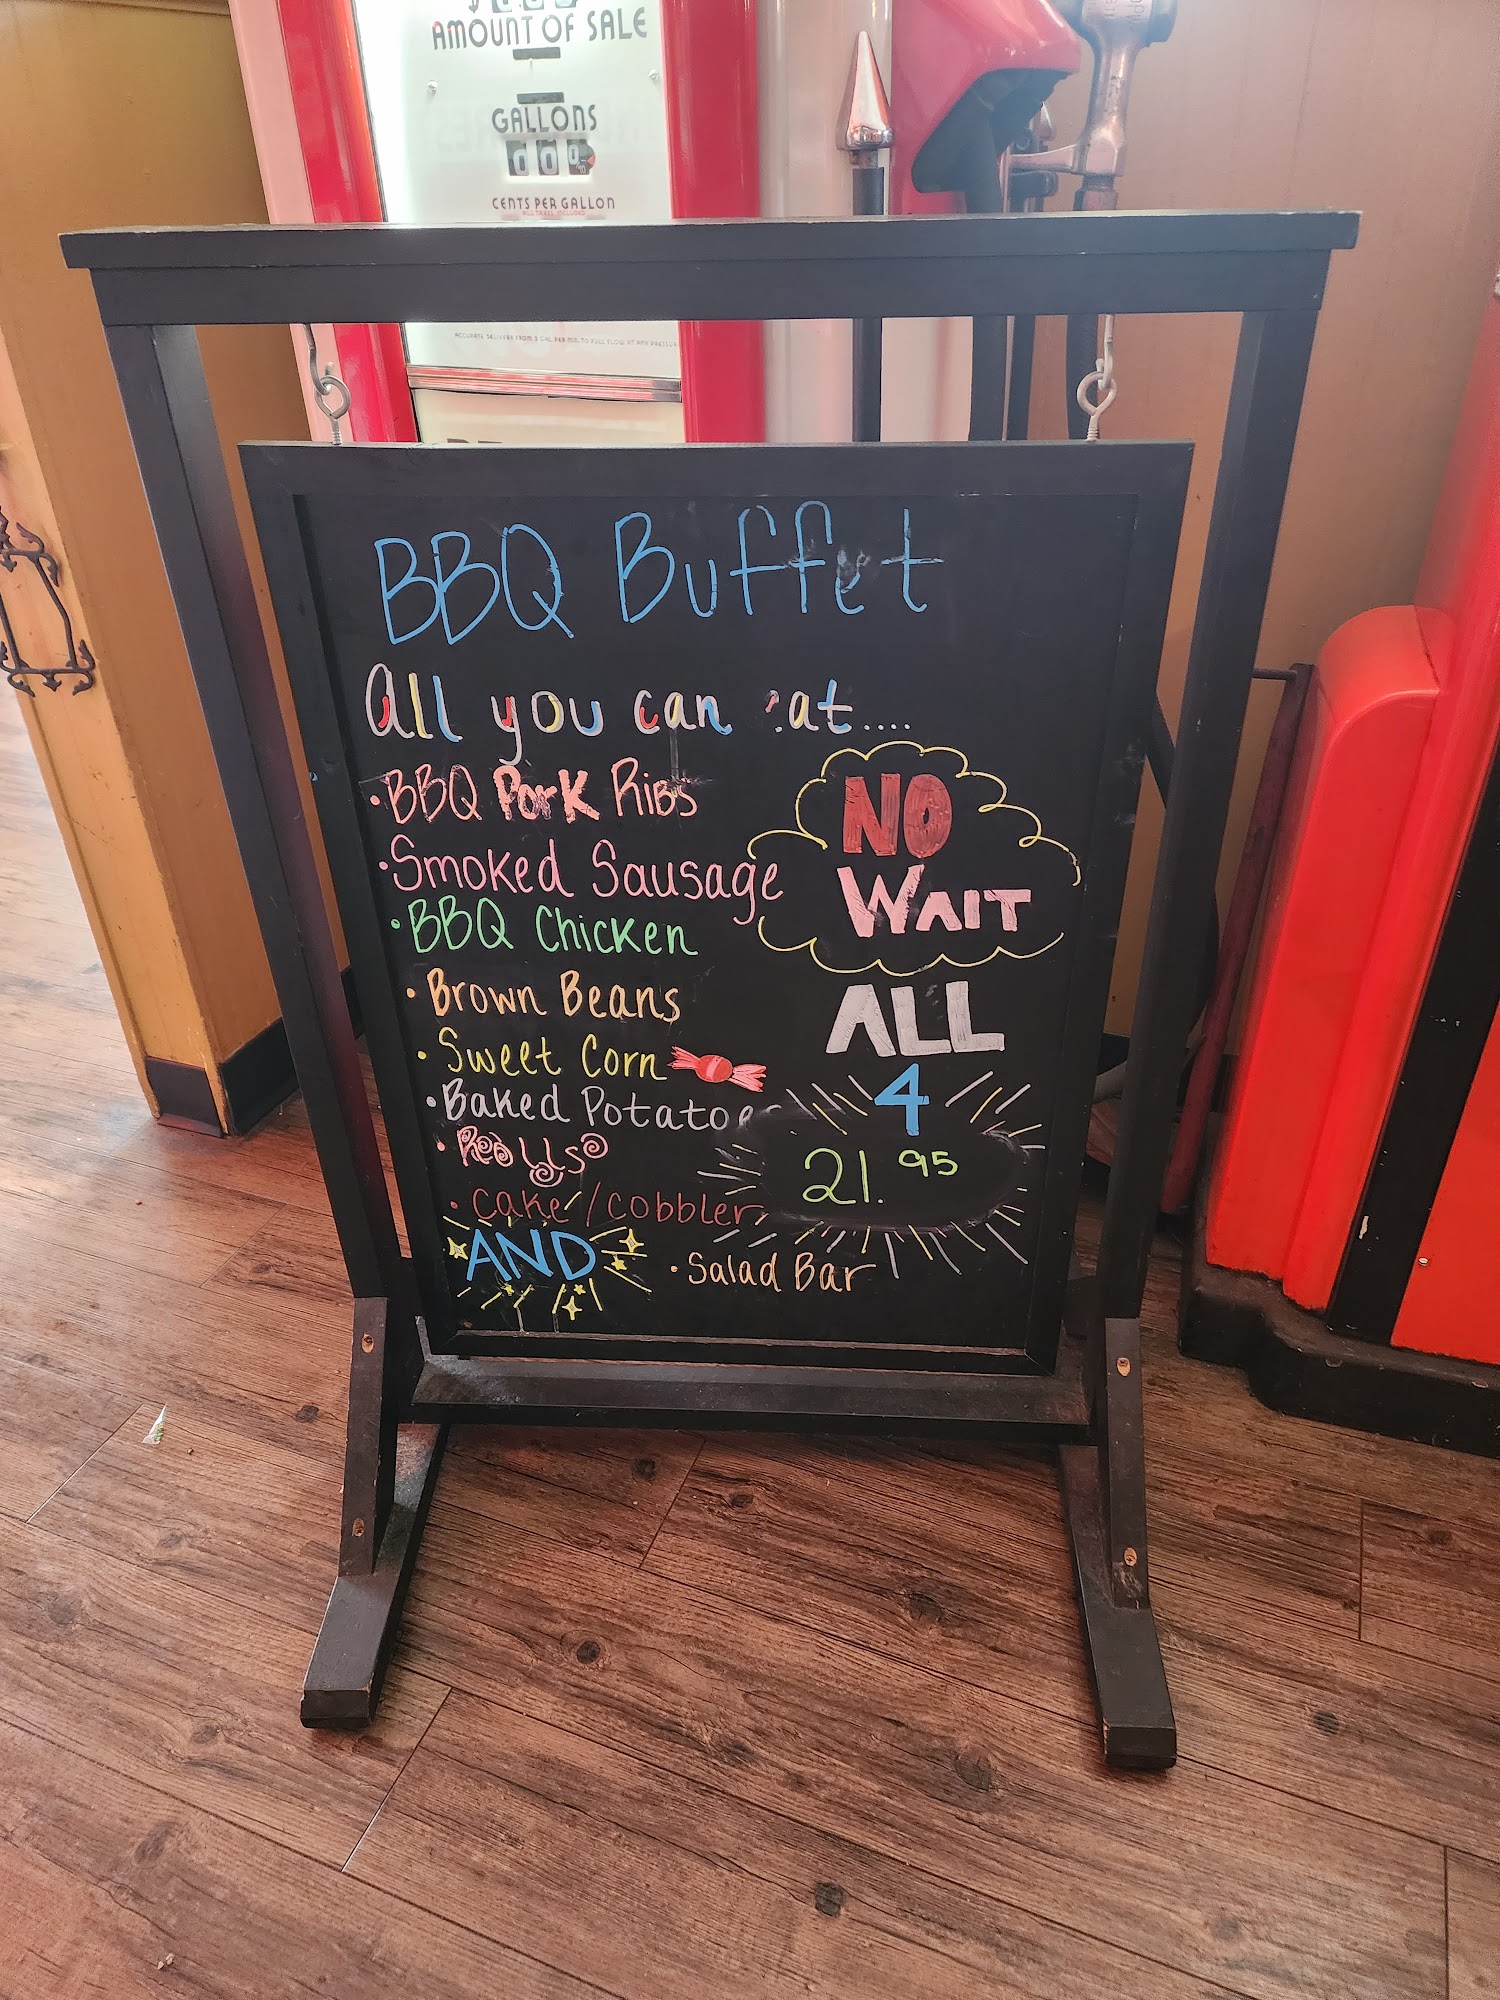 AMOUNT OF SALE
GALLONS
0 0 0
CENTS PER GALLON
ALL TAXES INCLUDED
BBQ Buffet
All you can eat....
• BBQ Pork Ribs
• Smoked Sausage
• BBQ Chicken
• Brown Beans
• Sweet Corn
• Baked Potatoe
• Rolls
• Cake / Cobbler
AND
• Salad Bar
NO
WAIT
ALL
4
21.95